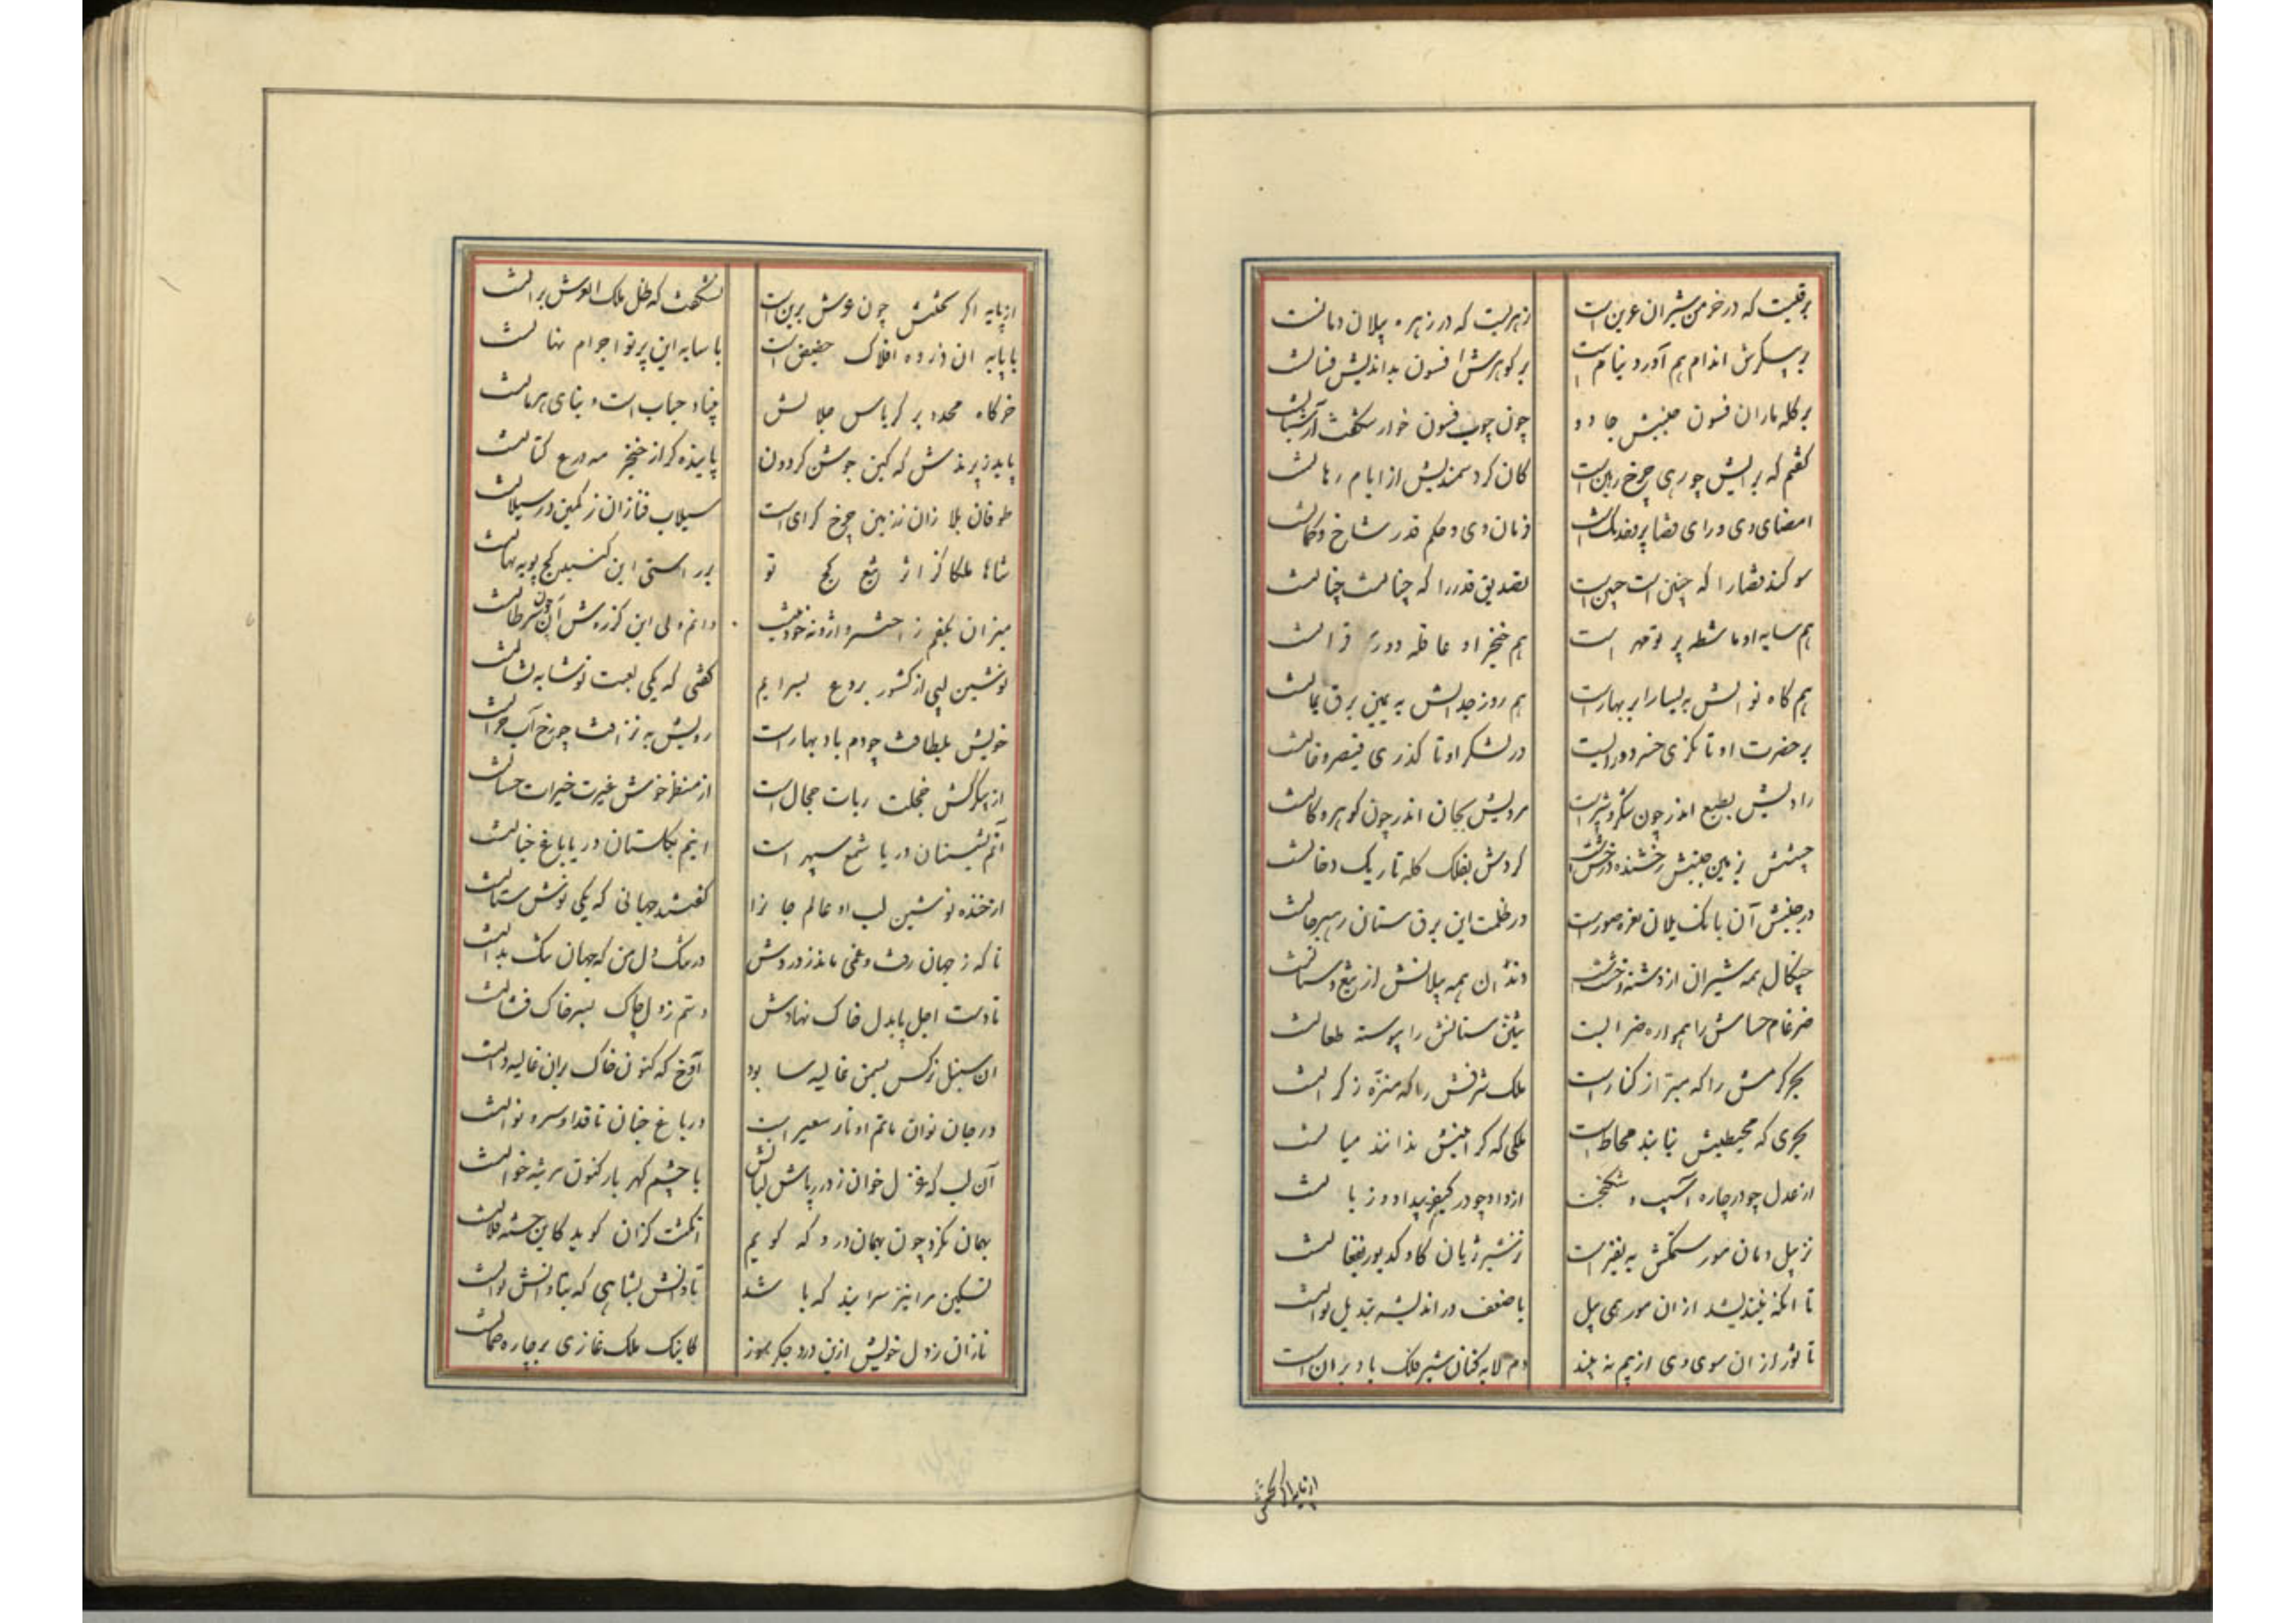 برقیست که در خرمن شیران عرین است
زهریست که در زهره پیلان دمانست
بر پیکرش اندام هم آورد نیام است
بر گوهرش افسون بداندیش فسانست
بر کله ماران فسون جنبش جادو
چون چوب فسون خوار
گفتم که برایش چو رهی چرخ رهین است
کان کرد سمندیش از ایام رهانست
امضای وی و رای قضا
فرمان وی و حکم قدر شاخ و
سوکند قضا را که چنین است چنین است
تصدیق قدر را که چنانست چنانست
هم سایه او ماشطه پرتو مهر است
هم خنجر او دوری قرانست
هم گاه نوالش به یسار ابر بهار است
هم روز جدالش به یمین برق یمانست
بر حضرت او تا نگری خسرو و رایست
در لشکر او تا گذری قیصر و خانست
رادیش بطبع اندر چون شکر و شیر است
مردیش بجان اندر چون گوهر و کانست
زمین جنبش رخشنده درخش است
گردش بفلک کله تاریک دخانست
در جنبش آن بانک یلان نعره صور است
در ظلمت این برق سنان رهبر جانست
چنگال همه شیران از دشنه و خشت
دندان همه پیلانش از تیغ و سنانست
ضرغام حسامش را همواره ضرابست
تنین سنانش را پیوسته طعانست
بحر کرمش را که مبرّا ز کنار است
ملک شرفش را که منزّه ز کرانست
بحری که محیطیش نیابند محاط است
ملکی که کرانیش ندانند میانست
از عدل چو در چاره آسیب و شکنجست
از داد چو در کیفر بیداد و زیانست
نز پیل دمان مور ستمکش به نفیر است
نز شیر ژیان گاو کدیور بفغانست
تا آنکه نیندیشد از ان مور همی پیل
با ضعف در اندیشه تبدیل توانست
تا ثور از ان سوی وی از بیم نه بیند
دم لابه کنان شیر فلک باد بر انست
از پایه اگر تختش
از پایه اگر تختش چون عرش برین است
نشگفت که ظل ملک العرش بر انست
با پایه ان ذروه افلاک حضیض است
با سایه این پرتو اجرام نهانست
خرگاه محدد بر کریاس جلالش
بنیاد حباب است و بنای هرمانست
پاید ز پرندش که کین جوشن گردون
پاینده گر از خنجر مه درع کتانست
طوفان بلا زان نه زمین چرخ گرای است
سیلاب فنا زان ز کمین در سیلانست
شاها ملکا کز اثر تیغ کج تو
بر راستی این گنبد کج پویه
میزان بکفم ز اختر وارونه خود نیست
دانم ولی این کژ روش آن چون سرطانست
نوشین لبی از کشور بردع بسرایم
گفتی که یکی لعبت نوشابه نشانست
خویش بلطافت چو دم باد بهار است
رویش به نزاهت چو رخ آب روانست
از پیکرکش خجلت ربات حجال است
از منظر خوش غیرت خیرات حسانست
آنم بشبستان در یا شمع سپهر است
اینم بگلستان در یا باغ جنانست
از خنده نوشین لب او عالم جانزا
گفتند جهانی که یکی نوش ستانست
ناکه ز جهان رفت و غمی ماند ز دردش
در تنک دل من که جهان تنک بدانست
تا دست اجل پابدل خاک نهادش
دستم ز دل چاک بسر خاک فشانست
ان سنبل نرگس بسمن غالیه سا بود
آوخ که کنون خاک بران غالیه دانست
در جان نوان ماتم او نار سعیر است
در باغ جنان تا قد او سرو نوانست
آن لب که غزل خوان ز درر پاش لبانش
با چشم گهر بار کنون مرثیه خوانست
بهمان نگرد چون بهمان درد که گویم
انگشت گزان گوید کاین خسته فلانست
تسکین مرا نیز سرایند که باشد
تاوانش بشاهی که بتاوانش توانست
نازان ز دل خویش ازین درد جگر سوز
کاینک ملک غازی بر چاره ضمانست